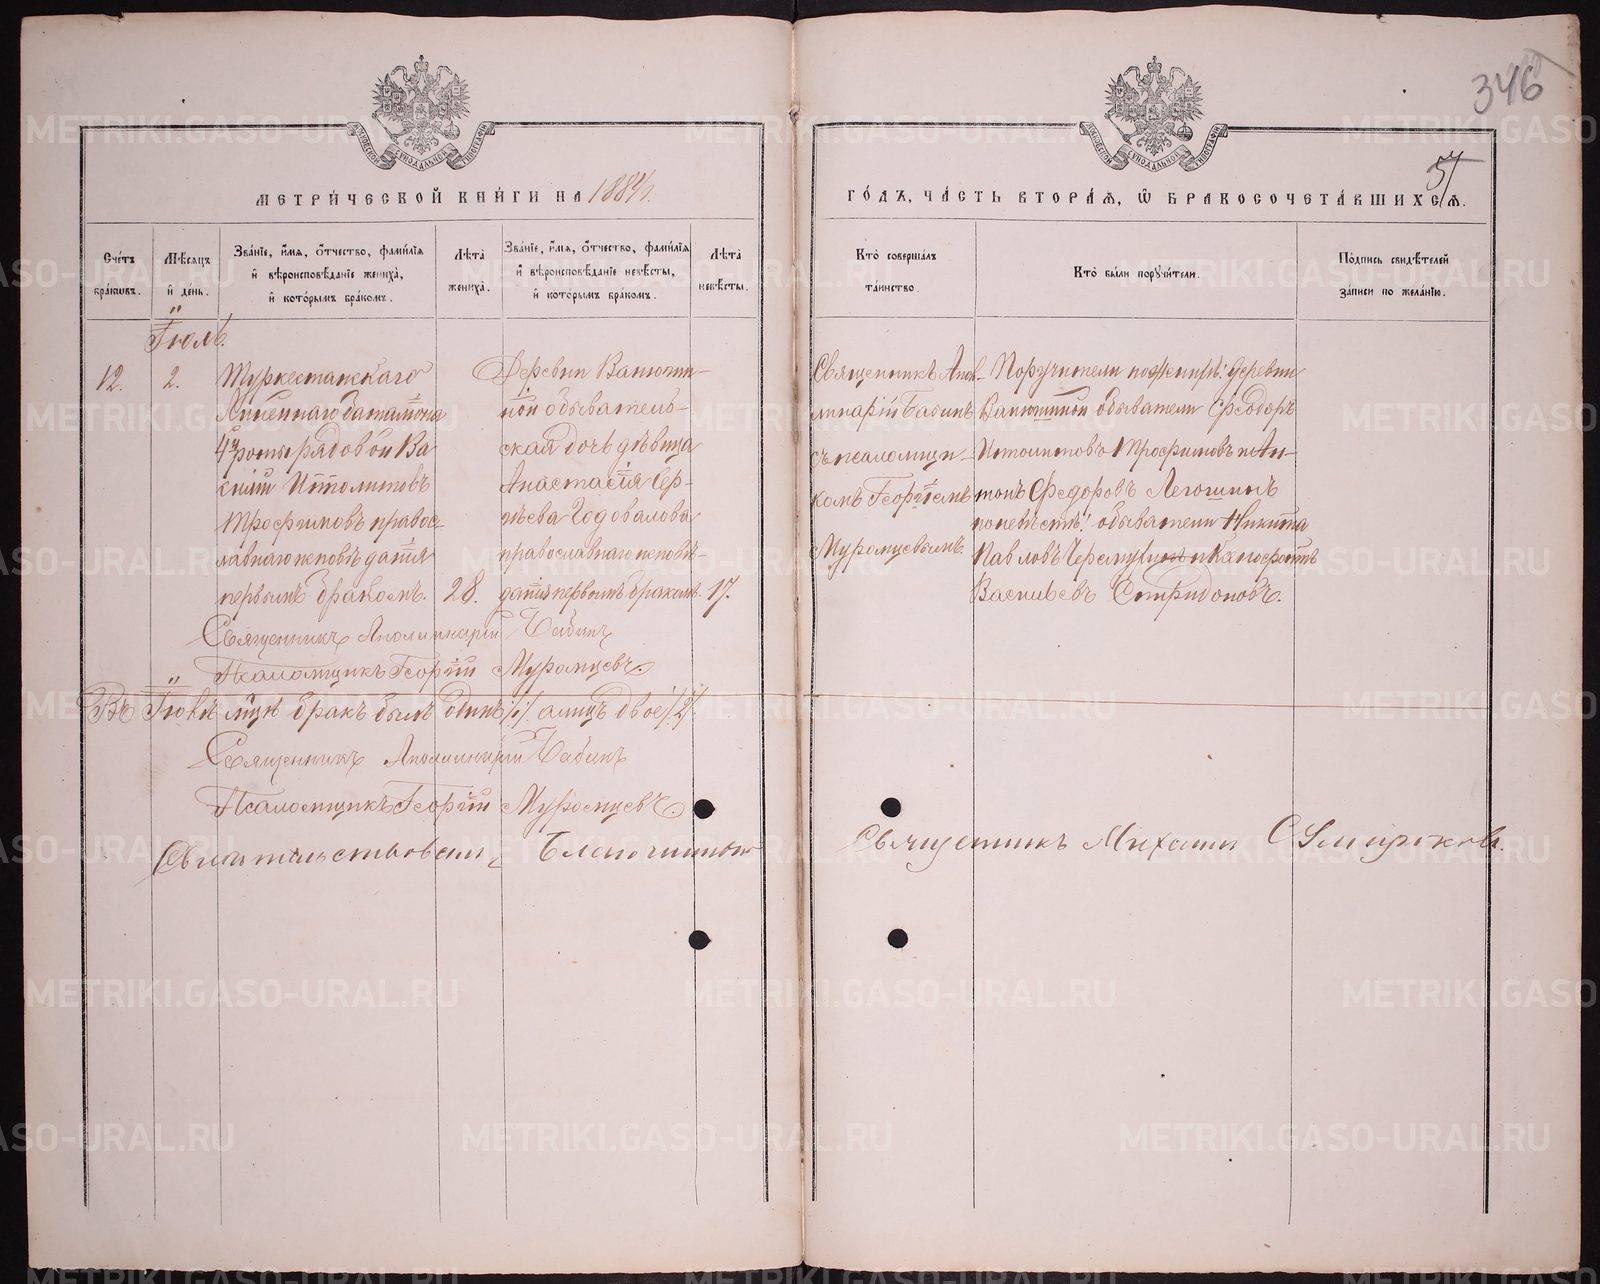 346
57
МЕТРИЧЕСКОЙ КНИГИ НА 1884 г.
ГОДЪ, ЧАСТЬ ВТОРАЯ, Ѡ БРАКОСОЧЕТАВШИХСЯ.
Счетъ браковъ.
Мѣсяцъ и день.
Званіе, имя, отчество, фамилія и вѣроисповѣданіе жениха, и которымъ бракомъ.
Лѣта жениха.
Званіе, имя, отчество, фамилія и вѣроисповѣданіе невѣсты, и которымъ бракомъ.
Лѣта невѣсты.
Кто совершалъ таинство.
Кто были поручители.
Подпись свидѣтелей записи по желанію.
Іюль.
12.
2.
Туркестанскаго
Линейнаго баталіона
4й роты рядовой Ва
силій Иполитовъ
Трофимовъ правос
лавнаго исповѣданія
первымъ бракомъ.
28.
Деревни Ванюши
ной обыватель-
ская дочь дѣвица
Анастасія Сер-
гѣева Годовалова
православнаго исповѣ-
данія первымъ бракомъ.
17.
Священникъ Апол-
линарій Бабинъ
съ псаломщи-
комъ Георгіемъ
Муромцевымъ.
Поручители по женихѣ: деревни
Ванюшиной обыватели Ѳедоръ
Иполитовъ Трофимовъ и Ан-
тонъ Ѳедоровъ Легошинъ
по невѣстѣ: обыватели Никита
Павловъ и Ксенофонтъ
Васильевъ Спиридоновъ.
Священникъ Аполлинарій Бабинъ
Псаломщикъ Георгій Муромцевъ.
Въ Іюлѣ м͠цѣ бракъ былъ одинъ /1/ а лицъ двое /2/.
Священникъ Аполлинарій Бабинъ
Псаломщикъ Георгій Муромцевъ.
Свидѣтельствовалъ Благочинный Священникъ Михаилъ